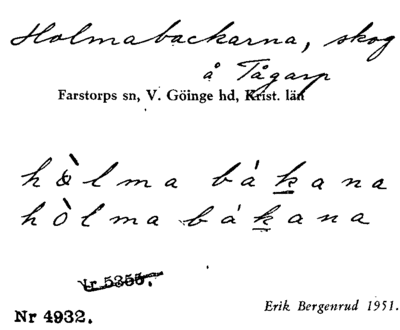 Holmabackarna, skog
å Tågarp
Farstorps sn, V. Göinge hd, Krist. län
hòlma bákana
hòlma bákana
Nr 5355.
Nr 4932.
Erik Bergenrud 1951.